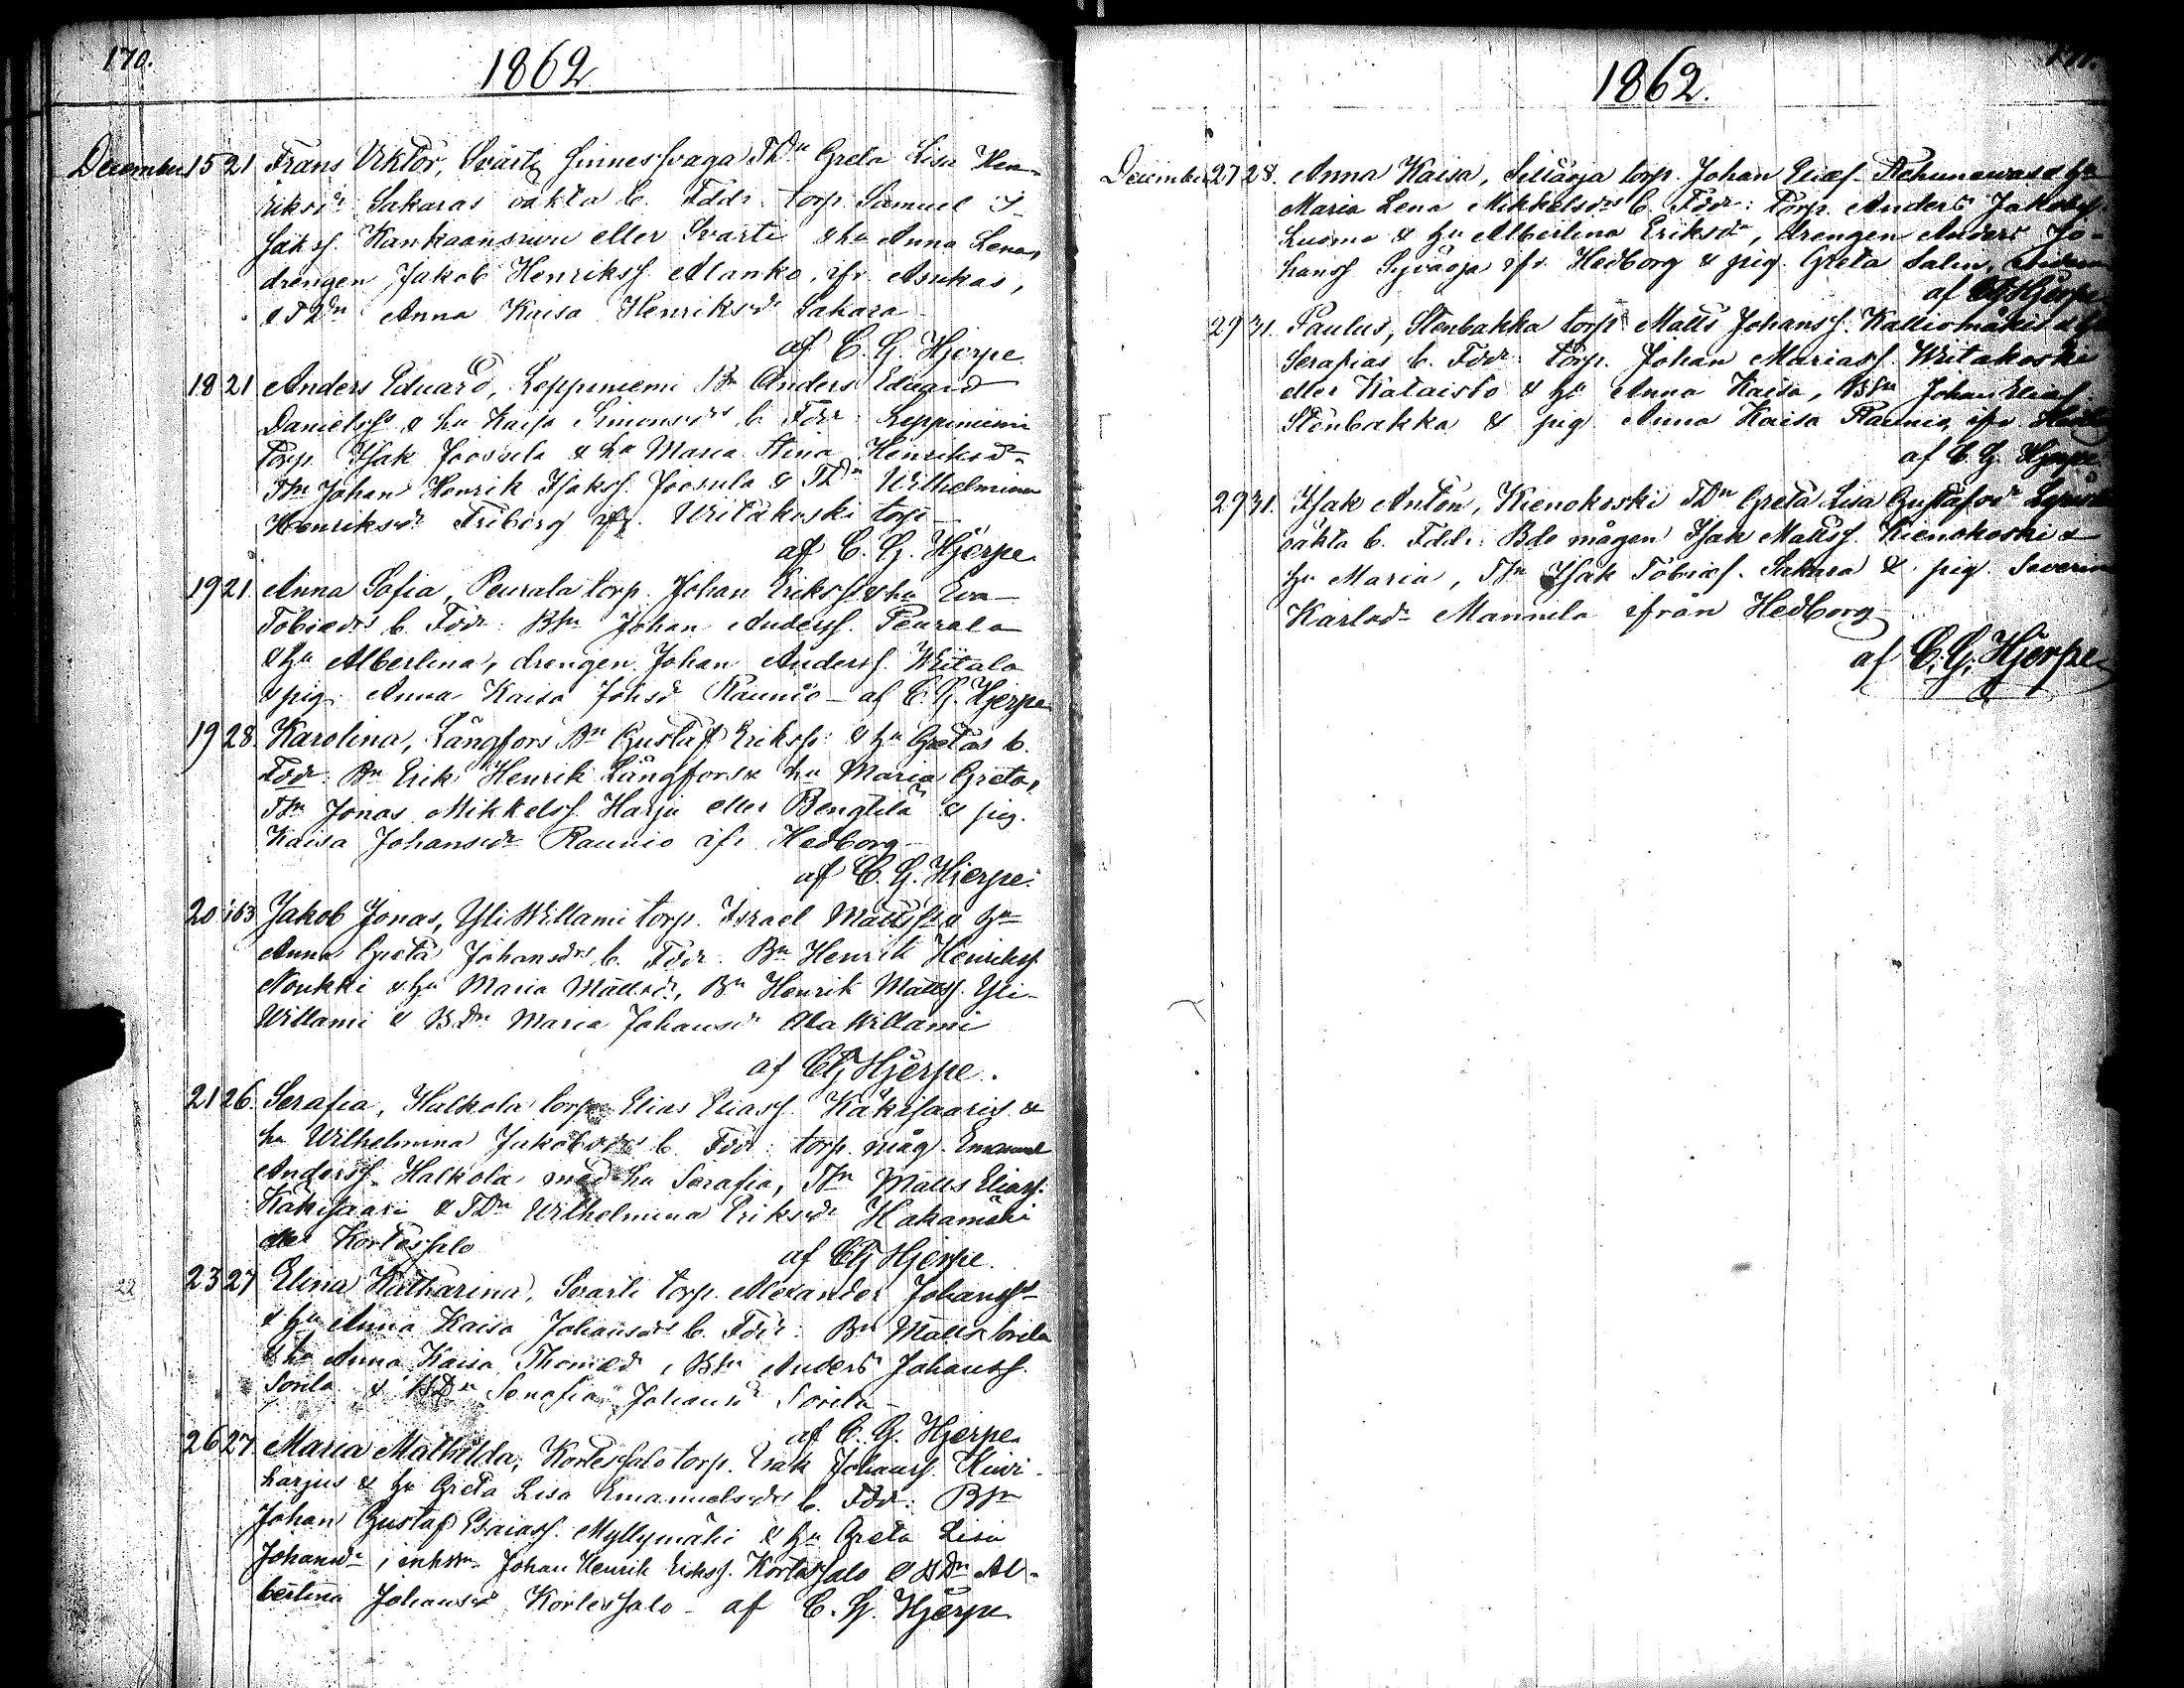 170.
1862
December 15 21 Frans Viktor, Svarti Tdn Greta Lisa Hen-
riksdr Sakaras oäkta b. Fddr. torp. Samuel I-
saksf. eller Svarti & hu Anna Lena,
drengen Jakob Henriksf. Alanko, ifr. Asukas,
& TDn Anna Kaisa Henriksdr Sahara
af C. G. Hjerpe
18 21 Anders Eduard, Leppiniemi Bn Anders Eduard
Danielsfs & hu Kaisa Simonsdrs b. Fddr. Leppiniemi
Torp. Isak Joosela & hu Maria Stina Henriksdr
TSn Johan Henrik Isaksf. Joosula & TDn Wilhelmina
Henriksdr Friberg ifr. Writakoski torp
af C. G. Hjerpe
19 21. Anna Sofia, Peurala torp. Johan Eriksfs & hu Eva
Tobiædrs b. Fddr: BSn Johan Andersf. Peurala
& hu Albertina, drengen Johan Andersf. Wiitala
& pig. Anna Kaisa Johsdr Raunio – af C. G. Hjerpe
19 28. Karolina, Långfors Bn Gustaf Eriksfs & hu Gretas b.
Fddr. Bn Erik Henrik Långfors & hu Maria Greta,
TSn Jonas Mikkelsf. Harju eller Bengtilä & pig.
Kaisa Johansdr Raunio ifr. Hedborg
af C. G. Hjerpe.
20 Jakob Jonas, Yli Willami torp. Israel Mattsfs & hu
Anna Greta Johansdrs b. Fddr. Bn Henrik Henriksf
Noukki & hu Maria Mattsdr, Bn Henrik Mattsf. Yli-
Willami & BDn Maria Johansdr Ala Willami
af CG Hjerpe.
21 26. Serafia, Halkola torp. Elias Eliasf. Käkisaaris &
hu Wilhelmina Jakobsdrs b. Fddr: torp. måg. Emanuel
Andersf. Halkola med hu Serafia, TSn Matts Eliasf.
Käkisaari & TDn Wilhelmina Eriksdr Hakamäki
eller Kortessalo
af CG Hjerpe.
22
23 27 Elina Katharina, Svarti torp. Alexander Johansfs
& hu Anna Kaisa Johansdrs b. Fddr: Bn Matts Sorila
& hu Anna Kaisa Thomædr, BSn Anders Johansf.
Sorila & BDn Serafia Johansdr Sorila
af C. G. Hjerpe.
26 27. Maria Mathilda, Kortessalo torp. Isak Johansf. Kivi-
harjus & hu Greta Lisa Emanuelsdrs b. Fddr: BSn
Johan Gustaf Esaiasf. Myllymäki & hu Greta Lisa
Johansdr, inhsn. Johan Henrik Eriksf. Kortessalo & BDn Al-
bertina Johansdr Kortessalo – af C. G. Hjerpe
1862.
December 27 28. Anna Kaisa, torp. Johan Eliæf. & hu
Maria Lena Mikkelsdrs b. Fddr: Torp. Anders Jakobsf.
Luoma & hu Albertina Eriksdr, drengen Anders Jo-
hansf. Syväoja ifr. Hedborg & pig. Greta Salin,
af CG Hjerpe
29 31. Paulus, Stenbakka torp. Matts Johansf. Kalliomäkis & hu
Serafias b. Fddr: torp. Johan Mariasf. Writakoski
eller Kataisto & hu Anna Kaisa, BSn Johan Eliasf.
Stenbakka & pig Anna Kaisa Raunio, ifr.
af C. G. Hjerpe
29 31. Isak Anton, Kienokoski TDn Greta Lisa Gustafsdr
oäkta b. Fddr: Bde mågen Isak Mattsf. Kienokoski &
hu Maria, TSn Isak Tobiæf. Sakara & pig. Severina
Karlsdr Mannila ifrån Hedborg
af C. G. Hjerpe